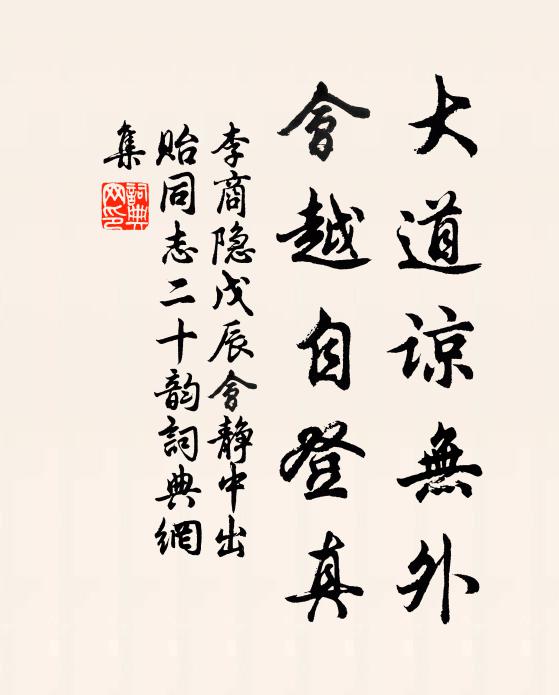 大道諒無外
會越自登真
李商隐戊辰會静中出
貽同志二十韵詞典網
集
詞典
网印